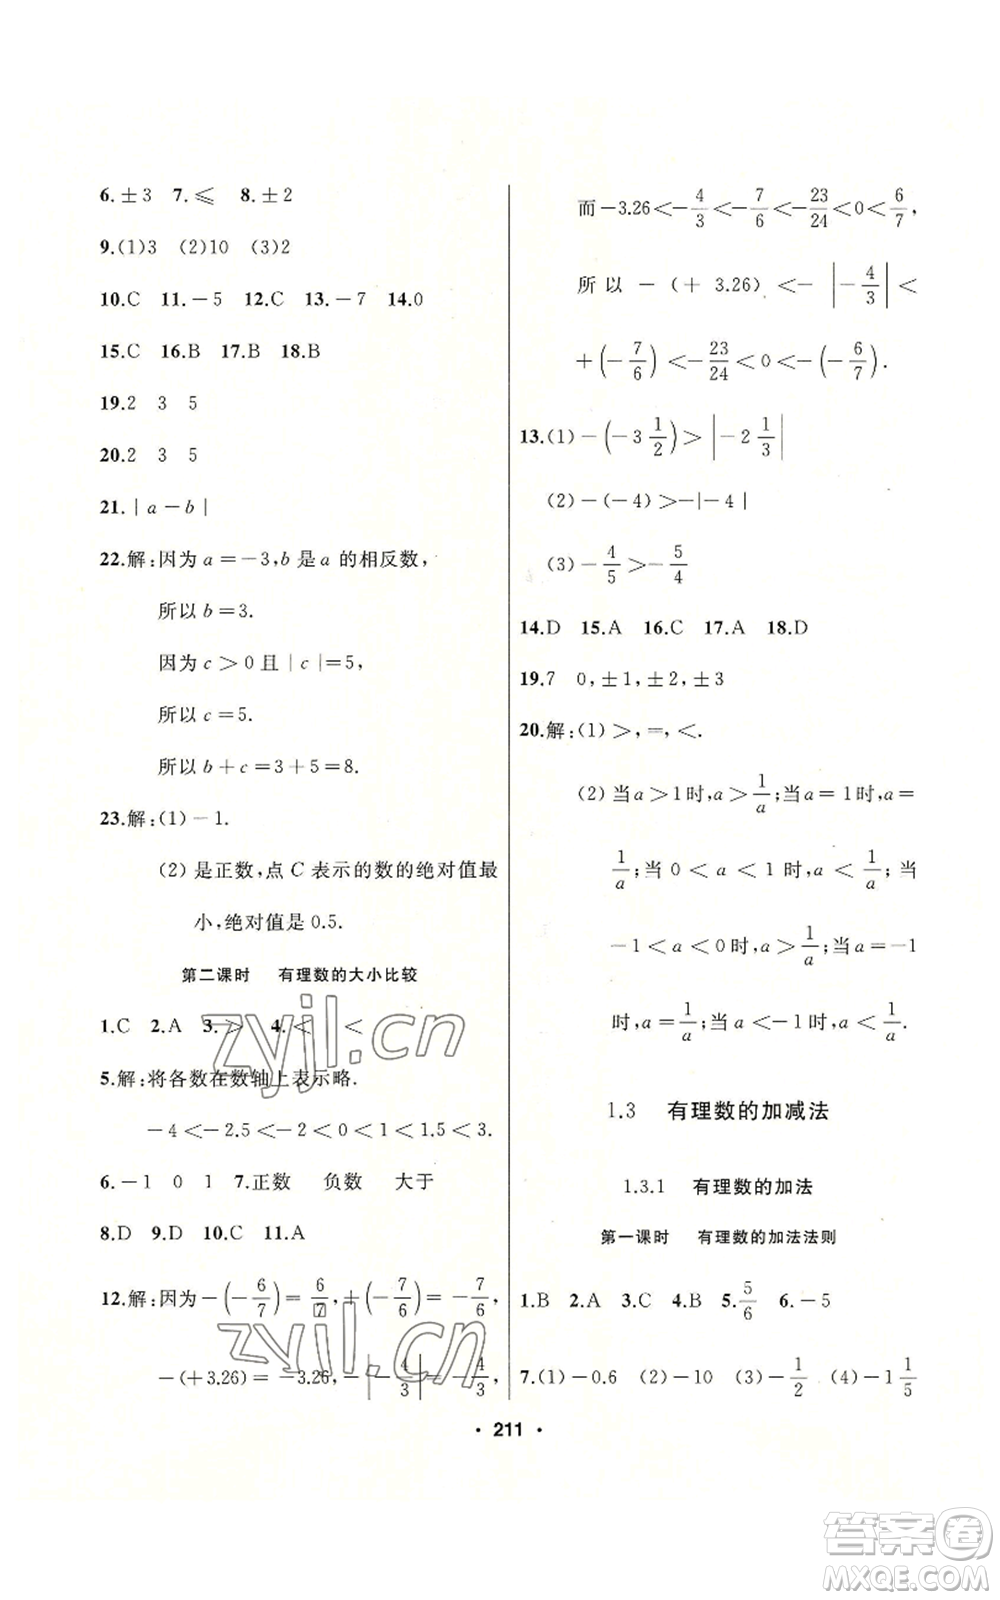 6.±3 7.≤ 8.±2
9.(1)3 (2)10 (3)2
10.C 11.－5 12.C 13.－7 14.0
15.C 16.B 17.B 18.B
19.2 3 5
20.2 3 5
21.|a－b|
22.解:因为a＝－3,b是a的相反数,
所以b＝3.
因为c＞0且|c|＝5,
所以c＝5.
所以b＋c＝3＋5＝8.
23.解:(1)－1.
(2)是正数,点C表示的数的绝对值最
小,绝对值是0.5.
第二课时 有理数的大小比较
1.C 2.A 3.＞ 4.＜ ＜
5.解:将各数在数轴上表示略.
－4＜－2.5＜－2＜0＜1＜1.5＜3.
6.－1 0 1 7.正数 负数 大于
8.D 9.D 10.C 11.A
12.解:因为－(－6/7)＝6/7,＋(－7/6)＝－7/6,
－(＋3.26)＝－3.26,－|－4/3|＝－4/3,
而－3.26＜－4/3＜－7/6＜－23/24＜0＜6/7,
所以－(＋3.26)＜－|－4/3|＜
＋(－7/6)＜－23/24＜0＜－(－6/7).
13.(1)－(－3 1/2)＞|－2 1/3|
(2)－(－4)＞－|－4|
(3)－4/5＞－5/4
14.D 15.A 16.C 17.A 18.D
19.7 0,±1,±2,±3
20.解:(1)＞,＝,＜.
(2)当a＞1时,a＞1/a;当a＝1时,a＝
1/a;当0＜a＜1时,a＜1/a;当
－1＜a＜0时,a＞1/a;当a＝－1
时,a＝1/a;当a＜－1时,a＜1/a.
1.3 有理数的加减法
1.3.1 有理数的加法
第一课时 有理数的加法法则
1.B 2.A 3.C 4.B 5.5/6 6.－5
7.(1)－0.6 (2)－10 (3)－1/2 (4)－1 1/5
• 211 •
zyjl.cn
zyjl.cn
答案卷
MXQE.COM